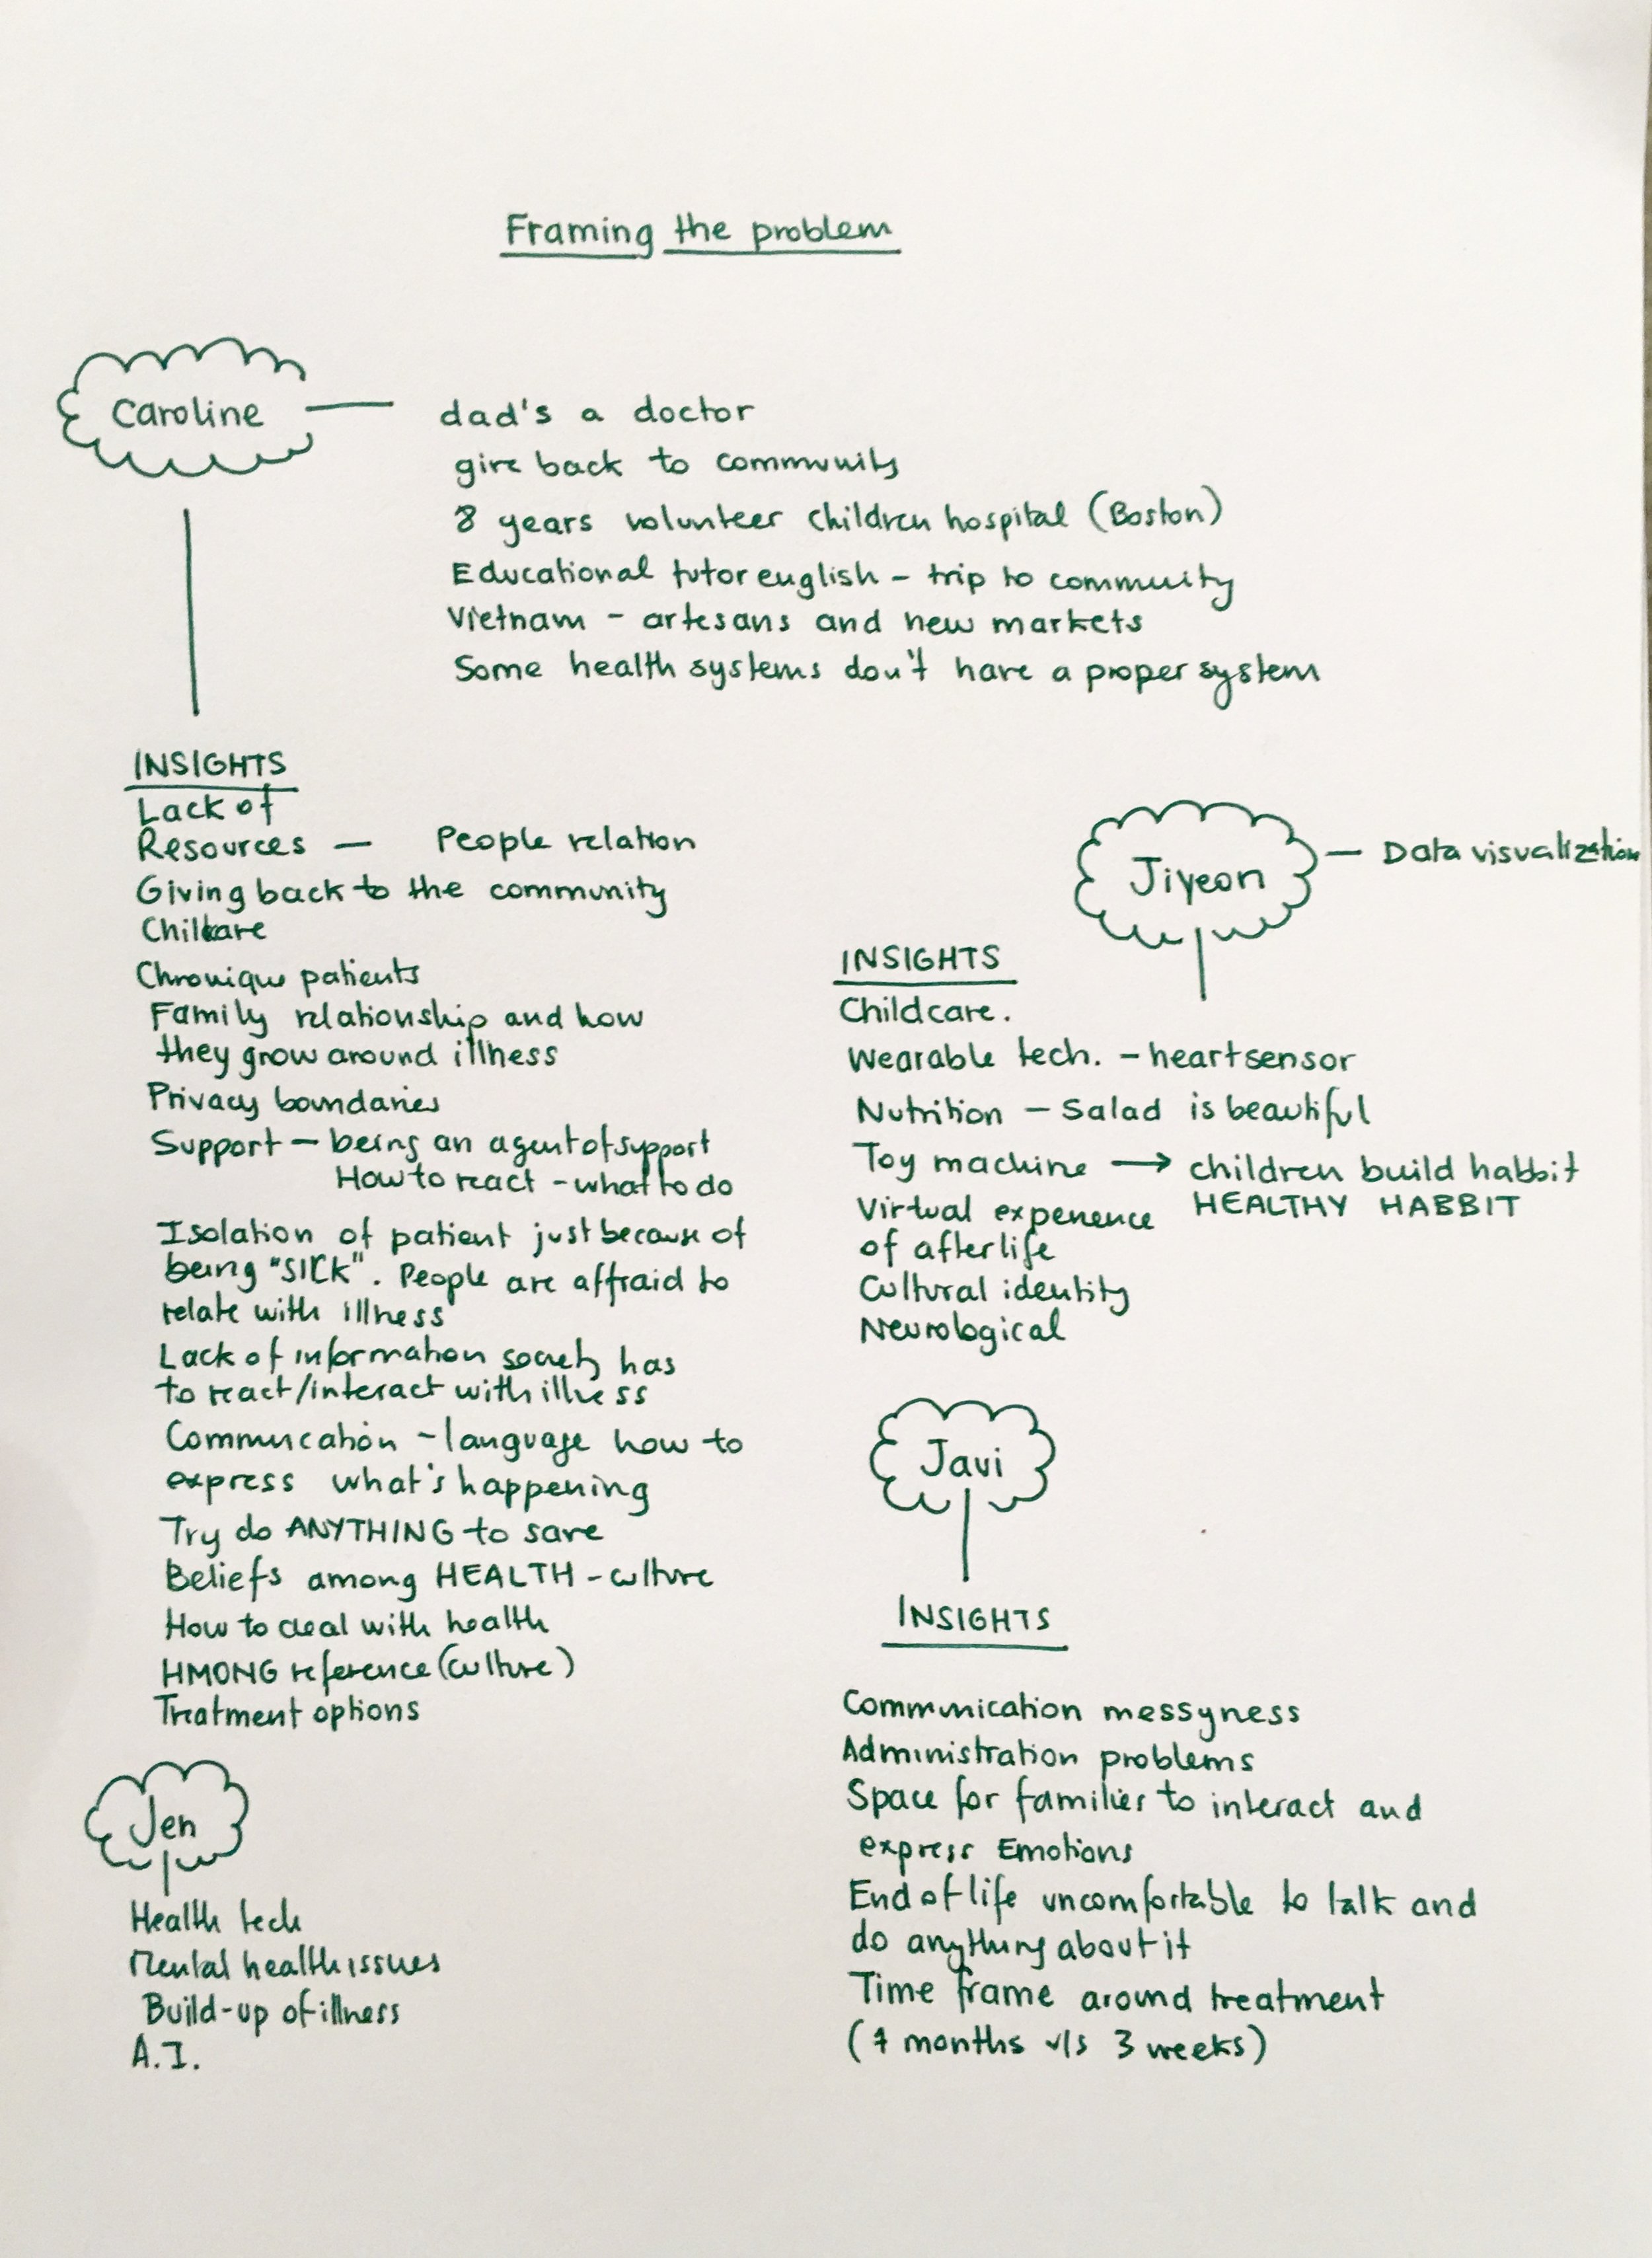 Framing the problem
Caroline — dad's a doctor
give back to community
8 years volunteer children hospital (Boston)
Educational tutor english - trip to commuity
Vietnam - artesans and new markets
Some health systems don't have a proper system
INSIGHTS
Lack of
Resources — People relation
Giving back to the community
Chilcare
Chronique patients
Family relationship and how
they grow around illness
Privacy boundaries
Support — being an agent of support
How to react - what to do
Isolation of patient just because of
being "SICK". People are affraid to
relate with illness
Lack of information society has
to react/interact with illness
Commucation - language how to
express what's happening
Try do ANYTHING to save
Beliefs among HEALTH - culture
How to deal with health
HMONG reference (culture)
Treatment options
Jen
Health tech
Mental health issues
Build-up of illness
A.I.
Jiyeon — Data visualization
INSIGHTS
Childcare.
Wearable tech. - heart sensor
Nutrition - Salad is beautiful
Toy machine → children build habbit
HEALTHY HABBIT
Virtual experience
of afterlife
Cultural identity
Neurological
Javi
INSIGHTS
Communication messyness
Administration problems
Space for families to interact and
express Emotions
End of life uncomfortable to talk and
do anything about it
Time frame around treatment
( months v/s 3 weeks)